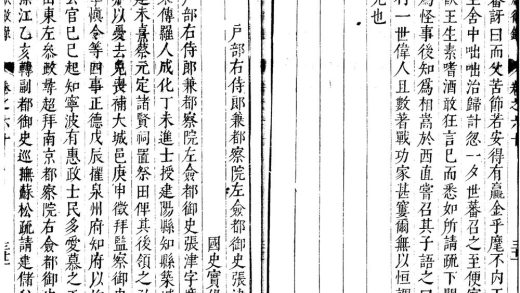 卷之六十
番訝曰而父苦節若安得有贏金乎麾不内
生舍中咄咄治歸計忽一夕世蕃召之至便
欵王生素嗜酒敢狂言已而悉如所請疏下
為怪事後知為相嵩於西直嘗召其子語之曰
行一世偉人且數著戰功家甚窶爾無以恒調
凡也
戶部右侍郎兼都察院左僉都御史張津
國史實
戶部右侍郎兼都察院左僉都御史張津字
東博羅人成化丁未進士授建陽縣知縣築城
建朱熹蔡元定諸賢祠置祭田俾其後領之
以憂去免喪補大城邑庚申徵拜監察御史
慎令等四事正德戊辰擢泉州府知府以
公官已巳起知寧波有惠政士民多愛慕之
東左參政尋超拜南京都察院右僉都御史
江乙亥轉副都御史巡撫蘇松疏請建儲
徵錄
卷之六十